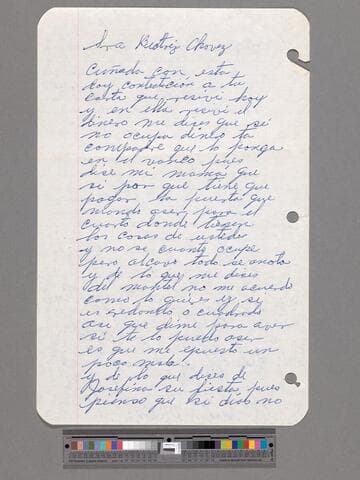 Sra Beatriz Chavez
Cuñada con esta
doy contestacion a tu
carta que resivi hoy
y en ella resivi el
dinero me dises que si
no ocupa dinero ta
compadre que lo ponga
en el vanco pues
dise mi mama que
si por que tiene que
pagar la puerta que
mando aser para el
cuarto donde tienen
las cosas de ustedes
y no se cuanto ocupe
pero alcavo todo se anota
y de lo que me dises
del mantel no me acuerdo
como lo quieres y si
es redondo o cuadrado
asi que dime para aver
si te lo puedo aser
es que me epuesto un
poco mala.
y de lo que dises de
Josefina su fiesta pues
pienso que si dios no